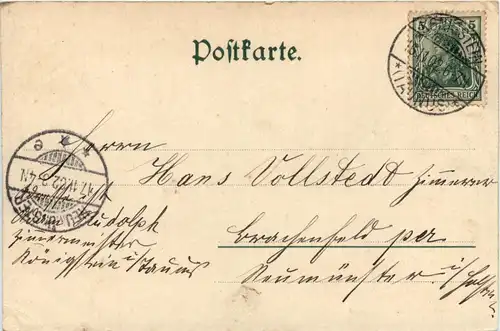 Postkarte.
5 5
DEUTSCHES REICH
Herrn
Hans Vollstedt Zimmerer
NEUMÜNSTER
17.11.02
Rudolph
Brachenfeld per
Zimmermeister
Neumünster i/Holst.
Königstein i/Taunus